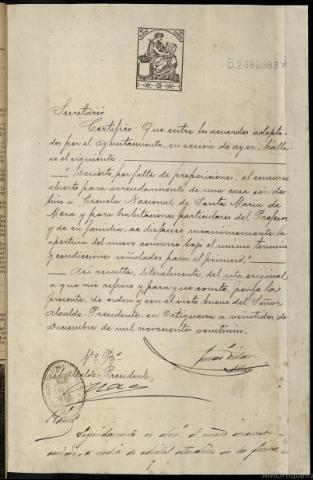 B.2.983.983
Secretario
Certifico: Que entre los acuerdos adopta-
dos por el ayuntamiento, en sesión de ayer, halla-
se el siguiente:
Desierto, por falta de proposiciones, el concurso
abierto para arrendamiento de una casa con des-
tino a Escuela Nacional de Santa María de
Mera y para habitaciones particulares del Profesor
y de su familia, se dispuso unanimemente la
apertura del nuevo concurso bajo el mismo término
y condiciones señalados para el primero.
Así resulta, literalmente, del acta original
a que me refiero y para que conste, pongo la
presente, de orden y con el visto bueno del Señor
Alcalde-Presidente, en Ortigueira a veintidos de
Diciembre de mil novecientos veintiuno.
Vº Bº
El Alcalde-Presidente,
Seguidamente se abrió el nuevo concurso